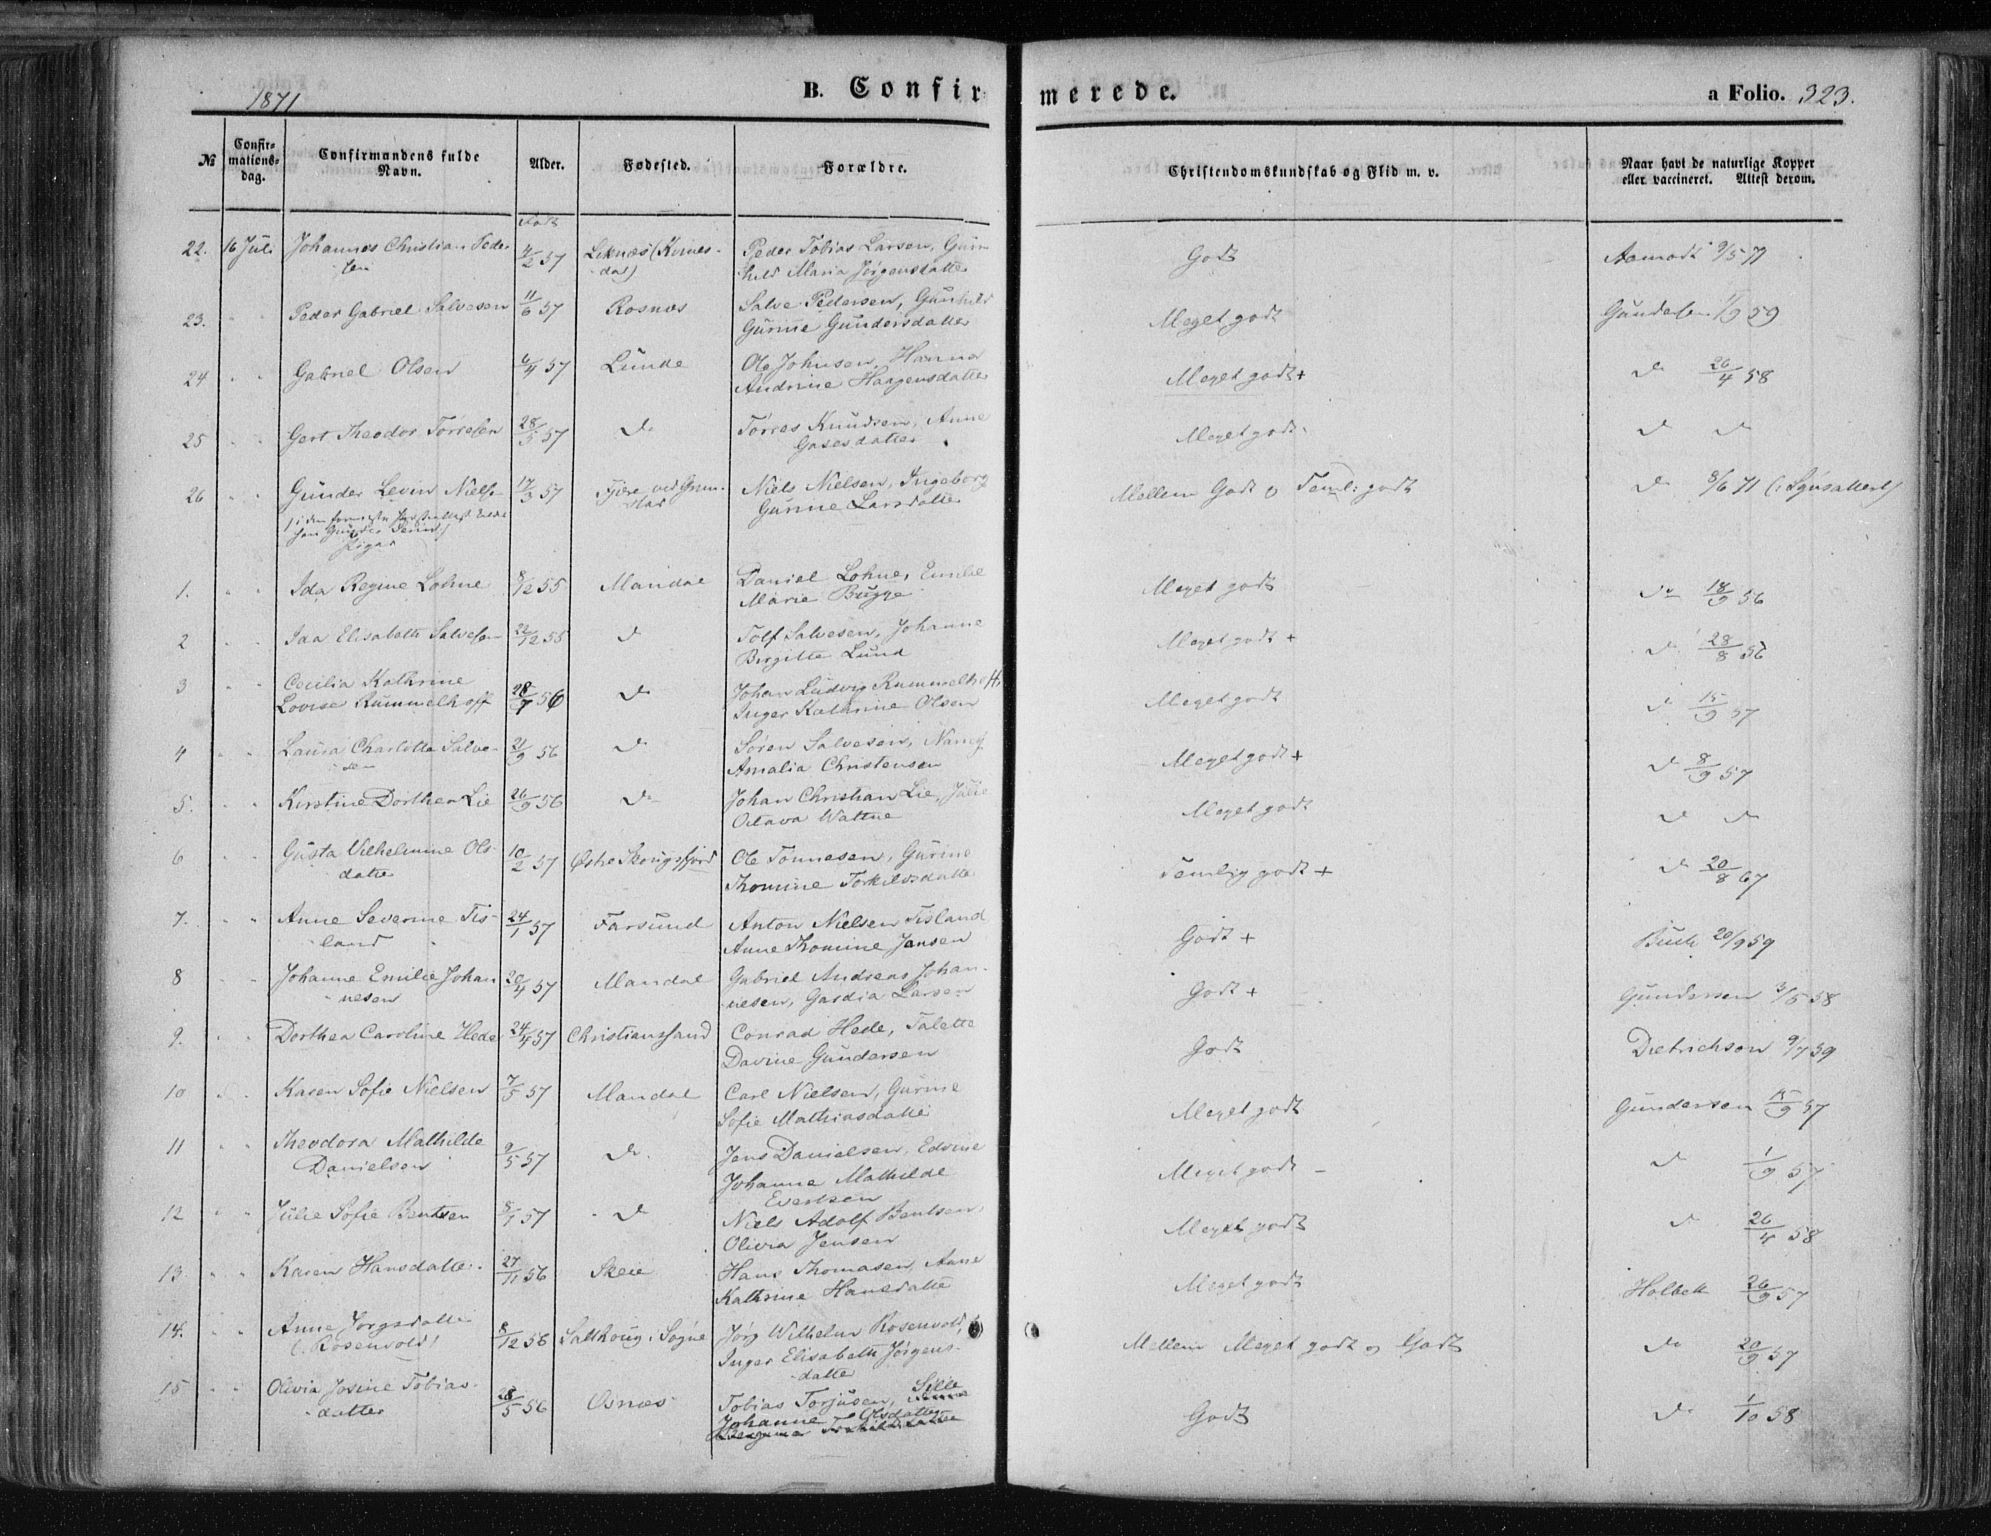 1871
B. Confirmerede.
a Folio. 323.
№
Confirmations-dag.
Confirmandens fulde Navn.
Alder.
Fødested.
Forældre.
Christendomskundskab og Flid m. v.
Naar havt de naturlige Kopper eller vaccineret. Attest derom.
født
22. 16 Juli Johannes Christian Peder- 4/2 57 Leknæs (Kvines- Peder Tobias Larsen, Gun- Godt Aamodt 9/5 71
sen dal) hild Maria Jørgensdatter
23. " " Peder Gabriel Salvesen 11/6 57 Rosnæs Salve Pedersen, Gunhild Meget godt Gundersen 1/9 59
Gurine Gundersdatter
24 " " Gabriel Olsen 4/4 57 Lunde Ole Johnsen, Hanna Meget godt + do 26/4 58
Andrine Haagensdatter
25 " " Gert Theodor Tørresen 28/5 57 do Tørres Knudsen, Anne Meget godt do do
Gasesdatter
26 " " Gunder Levin Niels- 17/3 57 Fjære ved Grim- Niels Nielsen, Ingeborg Mellem Godt og Temli: godt do 8/6 71
stad Gurine Larsdatter
1. " " Ida Regine Lohne 8/12 55 Mandal Daniel Lohne, Emilie Meget godt do 18/9 56
Marie Bugge
2 " " Ida Elisabeth Salvesen 22/12 55 do Tolf Salvesen, Johanne Meget godt + do 28/8 56
Birgitte Lund
3 " " Cecilia Kathrine
Lovise Rummelhoff 28/7 56 do Johan Ludvig Rummelhoff, Meget godt do 15/9 57
Inger Kathrine Olsen
4 " " Laura Charlotte Salve- 21/9 56 do Søren Salvesen, Nancy Meget godt + do 8/9 57
sen Amalia Christensen
5. " " Kirstine Dorthea Lie 26/9 56 do Johan Christian Lie, Julie Meget godt do do
Octava Wattne
6 " " Gusta Vilhelmine Ols- 10/2 57 Østre Skougsfjord Ole Tønnesen, Gurine Temlig godt + do 20/8 67
datter Thomine Torkildsdatter
7. " " Anne Severine Tis- 24/1 57 Farsund Anton Nielsen Tisland Godt + Buch 20/9 59
land Anne Thomine Jansen
8 " " Johanne Emilie Johan- 20/4 57 Mandal Gabriel Andreas Johan- Godt + Gundersen 3/5 58
nesen nesen, Gardia Larsen
9. " " Dorthea Caroline Hede 24/4 57 Christianssand Conrad Hede, Talette Godt Dietrichson 9/7 59
Davine Gundersen
10 " " Karen Sofie Nielsen 7/5 57 Mandal Carl Nielsen, Gurine Meget godt Gundersen 15/9 57
Sofie Mathiasdatter
11 " " Theodora Mathilde 9/5 57 do Jens Danielsen, Edvine Meget godt - do 1/9 57
Danielsen Johanne Mathilde
Evertsen
12 " " Julie Sofie Bentsen 8/1 57 do Niels Adolf Bentsen, Meget godt do 26/4 58
Olivia Jensen
13 " " Karen Hansdatter 27/11 56 Skeie Hans Thomasen, Anne Meget godt Holbek 26/9 57
Kathrine Hansdatter
14. " " Anne Jørgsdatter 8/12 56 Salthoug i Søgne Jørg Wilhelm Rosenvold, Mellem Meget godt og Godt do 20/9 57
(Rosenvold) Inger Elisabeth Jørgens-
datter
15 " " Olivia Josine Tobias- 28/5 56 Osnæs Tobias Torjusen, Sille Godt do 1/10 58
datter Johanne Olsdatter